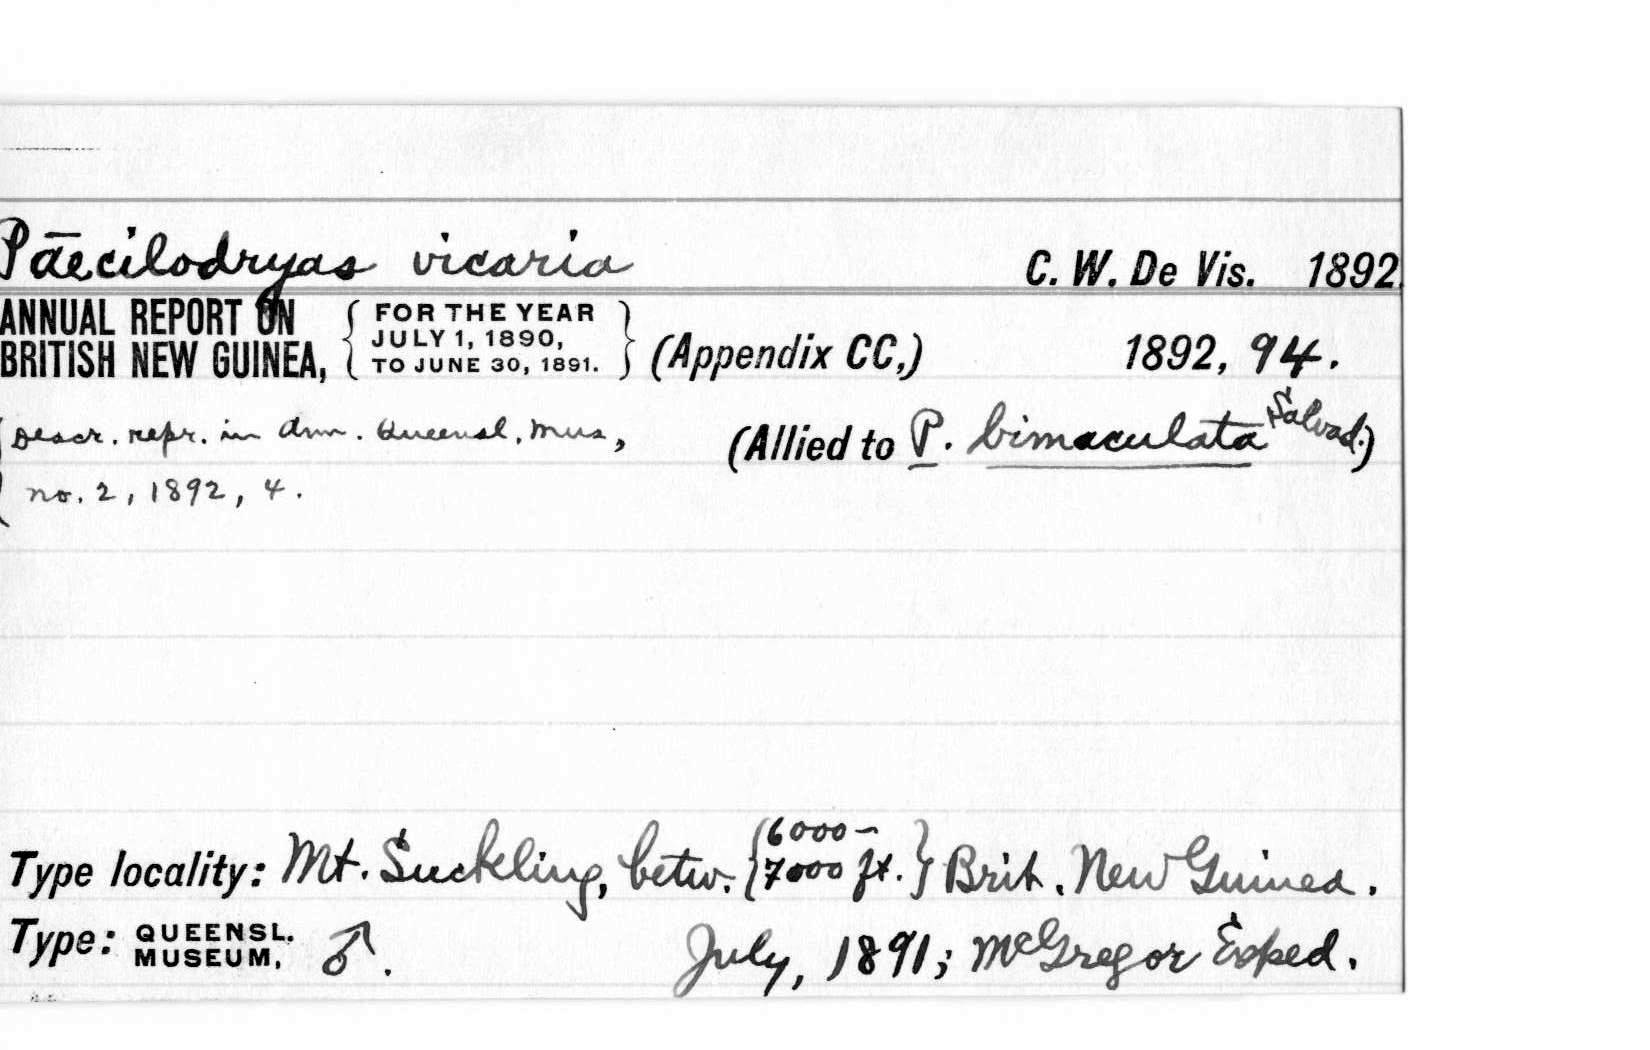 Pāecilodryas vicaria C. W. De Vis. 1892.
ANNUAL REPORT ON BRITISH NEW GUINEA, { FOR THE YEAR JULY 1, 1890, TO JUNE 30, 1891. } (Appendix CC,) 1892, 94.
(Descr. repr. in Ann. Queensl. Mus, (Allied to P. bimaculata Salvad.)
no. 2, 1892, 4.
Type locality: Mt. Suckling, betw. {6000– 7000 ft.} Brit. New Guinea.
Type: QUEENSL. MUSEUM, ♂. July, 1891; McGregor Exped.